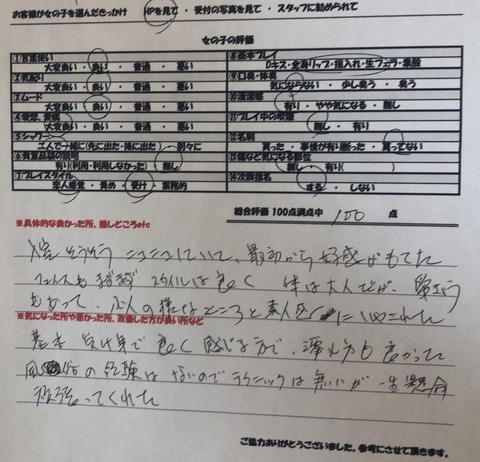 お客様が女の子を選んだきっかけ HPを見て・受付の写真を見て・スタッフに勧められて
女の子の評価
①言葉使い
大変良い・良い・普通・悪い
②気配り
大変良い・良い・普通・悪い
③ムード
大変良い・良い・普通・悪い
大変良い・良い・普通・悪い
⑤シャワー
二人で一緒に(先に出た・後に出た)・別々に
⑥貴重品袋の説明
有り(利用・利用しなかった)・無し
⑦プレイスタイル
恋人感覚・責め・受け・業務的
⑧基本プレイ
Dキス・全身リップ・指入れ・生フェラ・素股
⑨口臭・体臭
気にならない・少し臭う・臭う
⑩清潔感
有り・やや気になる・無し
⑪プレイ中の
無し・有り
⑫名刺
貰った・事情が有り断った・貰ってない
⑬傷など気になる部位
無し・有り( )
⑭次回指名
する・しない
総合評価 100点満点中 100 点
※具体的な良かった所、推しどころetc
ニコニコしていて、最初から好感がもてた
スタイルは良く 体は大人だが、
もあって、 の様なところと素人
※気になった所や悪かった所、改善した方が良い所など
基本 受け身で良く感じる方で、 も良かった
の経験はないのでテクニックは無いが一生懸命
頑張ってくれた
ご協力ありがとうございました。参考にさせて頂きます。